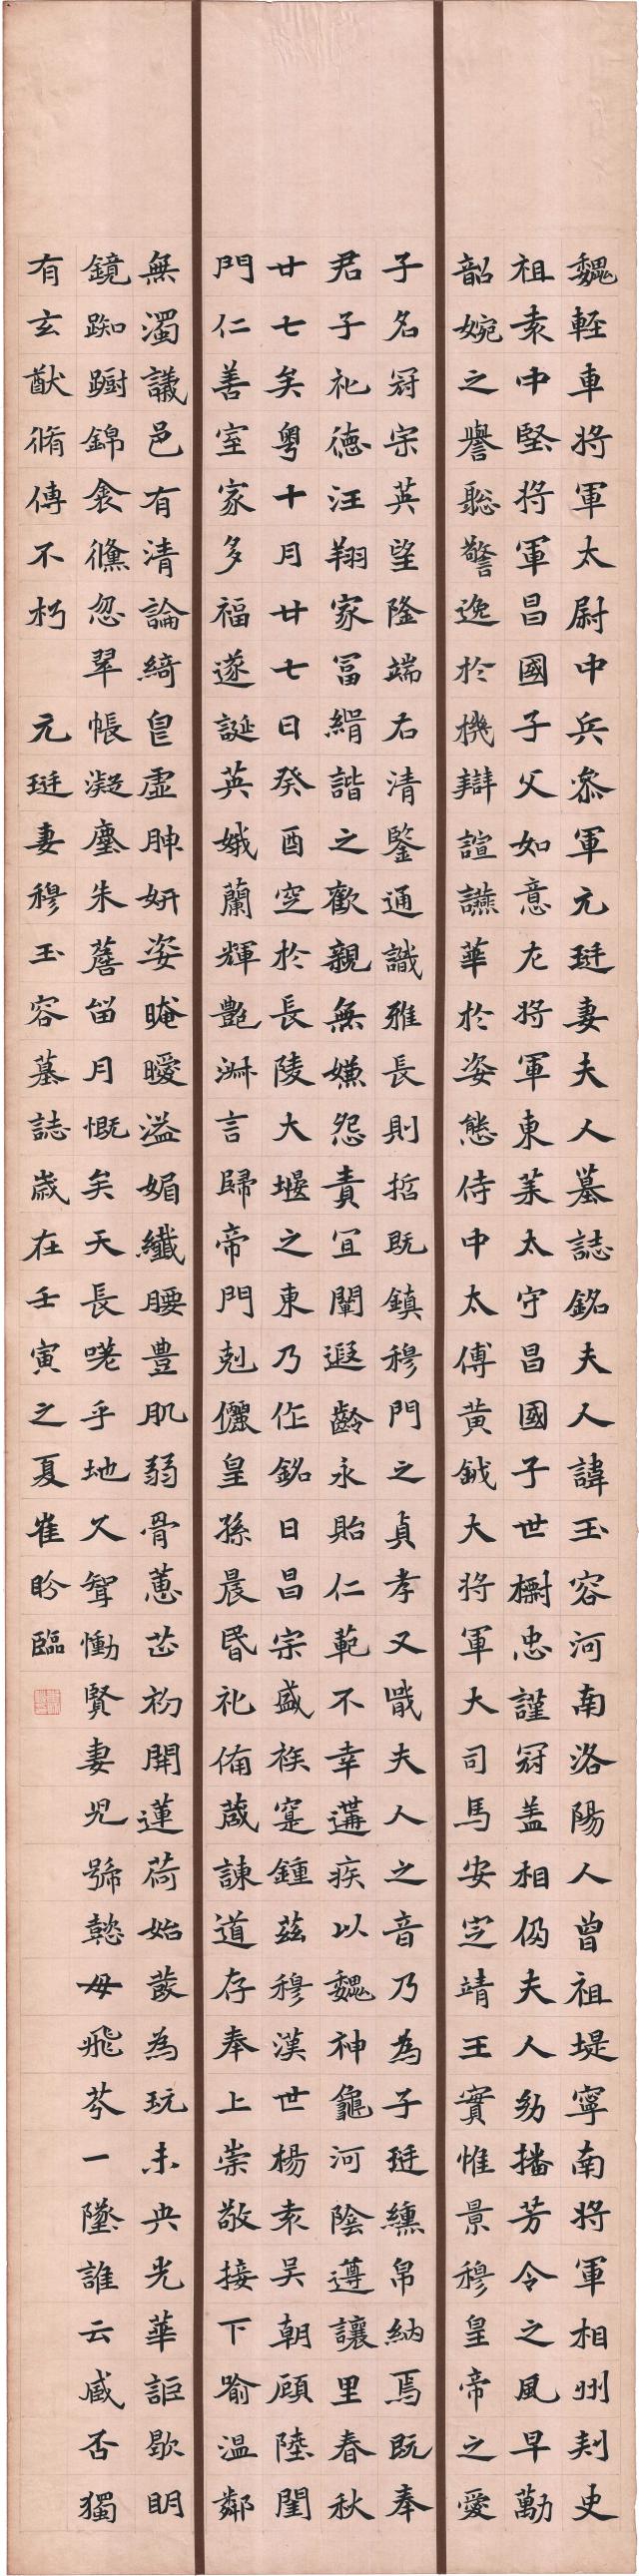 魏輕車將軍太尉中兵參軍元珽妻夫人墓誌銘夫人諱玉容河南洛陽人曾祖堤寧南將軍相州刾史
祖袁中堅將軍昌國子父如意左將軍東萊太守昌國子世檦忠謹冠盖相仍夫人幼播芳令之風早勱
韶婉之譽聡警逸於機辯諠讌華於姿態侍中太傅黃鉞大將軍大司馬安定靖王實惟景穆皇帝之愛
子名冠宗英望隆端右清鑒通識雅長則哲既鎮穆門之貞孝又戢夫人之音乃為子珽纁帛納焉既奉
君子礼德汪翔家冨緝諧之歡親無嫌怨責宜闡遐齡永貽仁範不幸遘疾以魏神龜河陰遵讓里春秋
廿七矣粵十月廿七日癸酉窆於長陵大堰之東乃作銘曰昌宗盛族寔鍾茲穆漢世楊袁吴朝顧陸閨
門仁善室家多福遂誕英娥蘭輝艷淋言歸帝門剋儷皇孫晨昏礼俻葴諫道存奉上崇敬接下喻温鄰
無濁議邑有清論綺皃虛胂妍姿晻曖溢媚纖腰豊肌弱骨蕙芷初開蓮荷始蕟為玩未央光華詎歇明
鏡踟躕錦衾儵忽翠帳凝塵朱簷留月慨矣天長嗟乎地久聟慟賢妻兒號懿母飛芩一墬誰云臧否獨
有玄猷脩傳不朽　元珽妻穆玉容墓誌歲在壬寅之夏崔盻臨